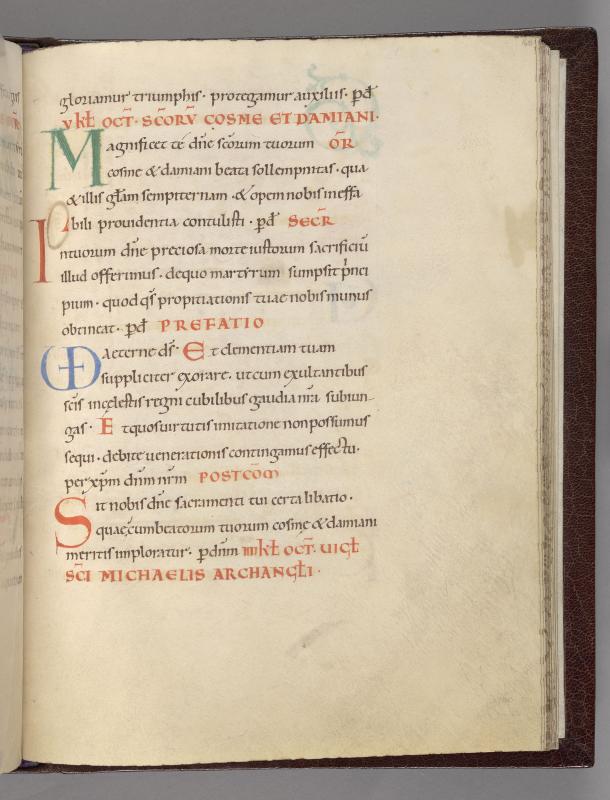 gloriamur triumphis · protegamur auxiliis · p̄d̄
v kł OCT̄ · SC̄ORV̄ COSME ET DAMIANI ·
Magnificet te dn̄e sc̄orum tuorum OR̄
cosme & damiani beata sollempnitas · qua
& illis gl̄am sempiternam · & opem nobis ineffa
bili providentia contulisti · p̄d̄ SECR̄
In tuorum dn̄e preciosa morte iustorum sacrificiū
illud offerimus · de quo martyrium sumpsit p̄nci
pium · quod q̄s propitiationis tuae nobis munus
obtineat · p̄d̄ PREFATIO
aeterne ds̄ · Et clementiam tuam
suppliciter exorare · ut cum exultantibus
sc̄is in cęlestis regni cubilibus gaudia nr̄a subiun-
gas · Et quos virtutis imitatione non possumus
sequi · debite venerationis contingamus effectu ·
per xp̄m dn̄m nr̄m POSTCOM̄
Sit nobis dn̄e sacramenti tui certa libatio ·
quaęcum beatorum tuorum cosme & damiani
meritis imploratur · p dn̄m IIII kł OCT̄ · VIGŁ
SC̄I MICHAELIS ARCHANGŁI ·